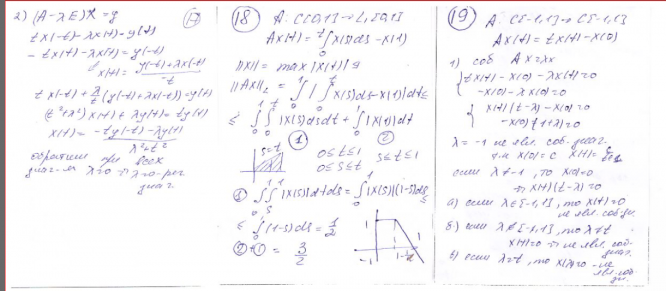 2) (A - λE)x = y
tx(-t) - λx(t) = y(t)
- tx(t) - λx(-t) = y(-t)
x(t) = (y(-t) + λx(-t)) / -t
tx(-t) + λ/t (y(-t) + λx(-t)) = y(t)
(t² + λ²) x(t) + λy(t) = ty(t)
x(t) = (-ty(-t) - λy(t)) / (λ² + t²)
при всех
18
A: C[0,1] → L₁[0,1]
Ax(t) = ∫₀ᵗ x(s)ds - x(t)
||x|| = max |x(t)|
||Ax||_L = ∫₀¹ | ∫₀ᵗ x(s)ds - x(t)| dt ≤
≤ ∫₀¹ ∫₀ᵗ |x(s)| ds dt + ∫₀¹ |x(t)| dt
① ②
s=t
0 ≤ t ≤ 1
0 ≤ s ≤ t
s ≤ t ≤ 1
① ∫₀¹ ∫ₛ¹ |x(s)| dt ds = ∫₀¹ |x(s)| (1-s) ds ≤
≤ ∫₀¹ (1-s) ds = 1/2
② + ① = 3/2
1
-1
1
19
A: C[-1,1] → C[-1,1]
Ax(t) = tx(t) - x(0)
1) соб Ax = λx
tx(t) - x(0) - λx(t) = 0
-x(0) - λx(0) = 0
x(t)(t - λ) - x(0) = 0
-x(0)(1 + λ) = 0
λ = -1 не явл. соб. знач.
т.к x(0) = c x(t) =
если λ ≠ -1, то x(0) = 0
x(t)(t - λ) = 0
а) если λ ∈ [-1,1], то x(t) = 0
не явл. соб зн.
б) если λ ∉ [-1,1], то λ ≠ t
x(t) = 0 не явл. соб
знач.
в) если λ = t, то x(λ) = 0 - не
явл. соб
зн.